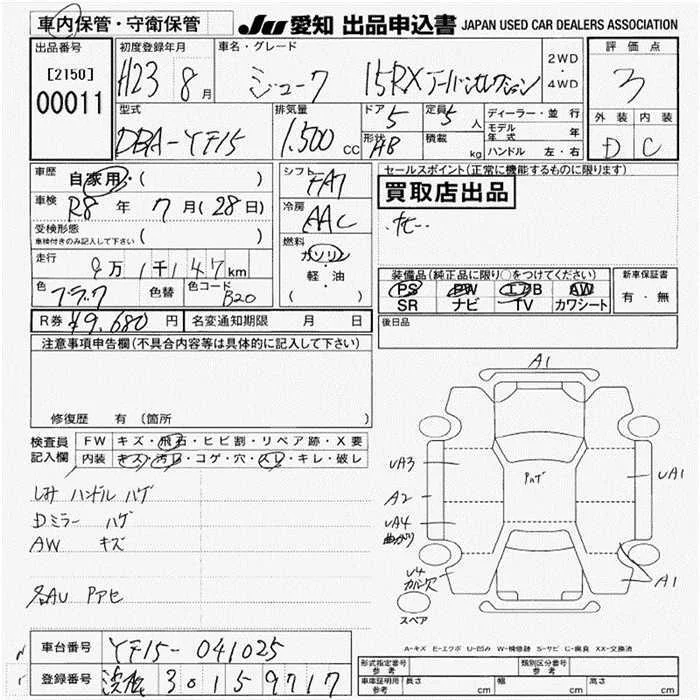 車内保管・守衛保管
JU 愛知 出品申込書 JAPAN USED CAR DEALERS ASSOCIATION
出品番号
[2150]
00011
初度登録年月
H23 8 月
車名・グレード
ジューク 15RX アーバンセレクション
2WD
・
4WD
評価点
3
外装 内装
D C
型式
DBA-YF15
排気量
1.500 cc
ドア
5
定員
5 人
形状
HB
積載
kg
ディーラー・並行
モデル年式 年
ハンドル 左・右
車歴
自家用・( )
車検
R8 年 7 月(28 日)
受検形態
車検付きのみ記入して下さい ( )
走行
9 万 1 千 147 km
色
ブラック
色替
色コード
B20
シフト
FAT
冷房
AAC
燃料
ガソリン
・
軽・油
( )
セールスポイント(正常に機能するものに限ります)
買取店出品
ナビ
装備品(純正品に限り〇をつけてください)
PS PW エアB AW
SR ナビ TV カワシート
新車保証書
有・無
R券 ¥9,680 円
名変通知期限 月 日
後日品
注意事項申告欄(不具合内容等は具体的に記入して下さい)
修復歴 有 (箇所 )
検査員
記入欄
FW キズ・飛石・ヒビ割・リペア跡・X要
内装 キズ・汚レ・コゲ・穴・スレ・キレ・破レ
ハンドル ハゲ
Dミラー ハゲ
AW キズ
各AU Pアセ
A1
UA3
A2
UA4
曲がり
U4
Pハゲ
UA1
A1
スペア
A-キズ E-エクボ U-凹み W-補修跡 S-サビ C-腐食 XX-交換済
車台番号 YF15-041025
登録番号 301 59717
形式指定番号
参考
類別区分番号
参考
車庫証明用
参考
長さ cm
幅 cm
高さ cm